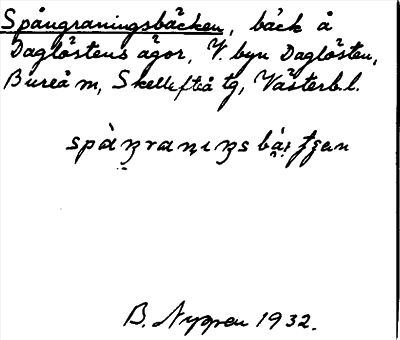 Spångraningsbäcken, bäck å
Daglöstens ägor, V. byn Daglösten,
Bureå sn, Skellefteå tg, Västerb.l.
spàŋraniŋsbä̀ţʒən
B. Nyppen 1932.